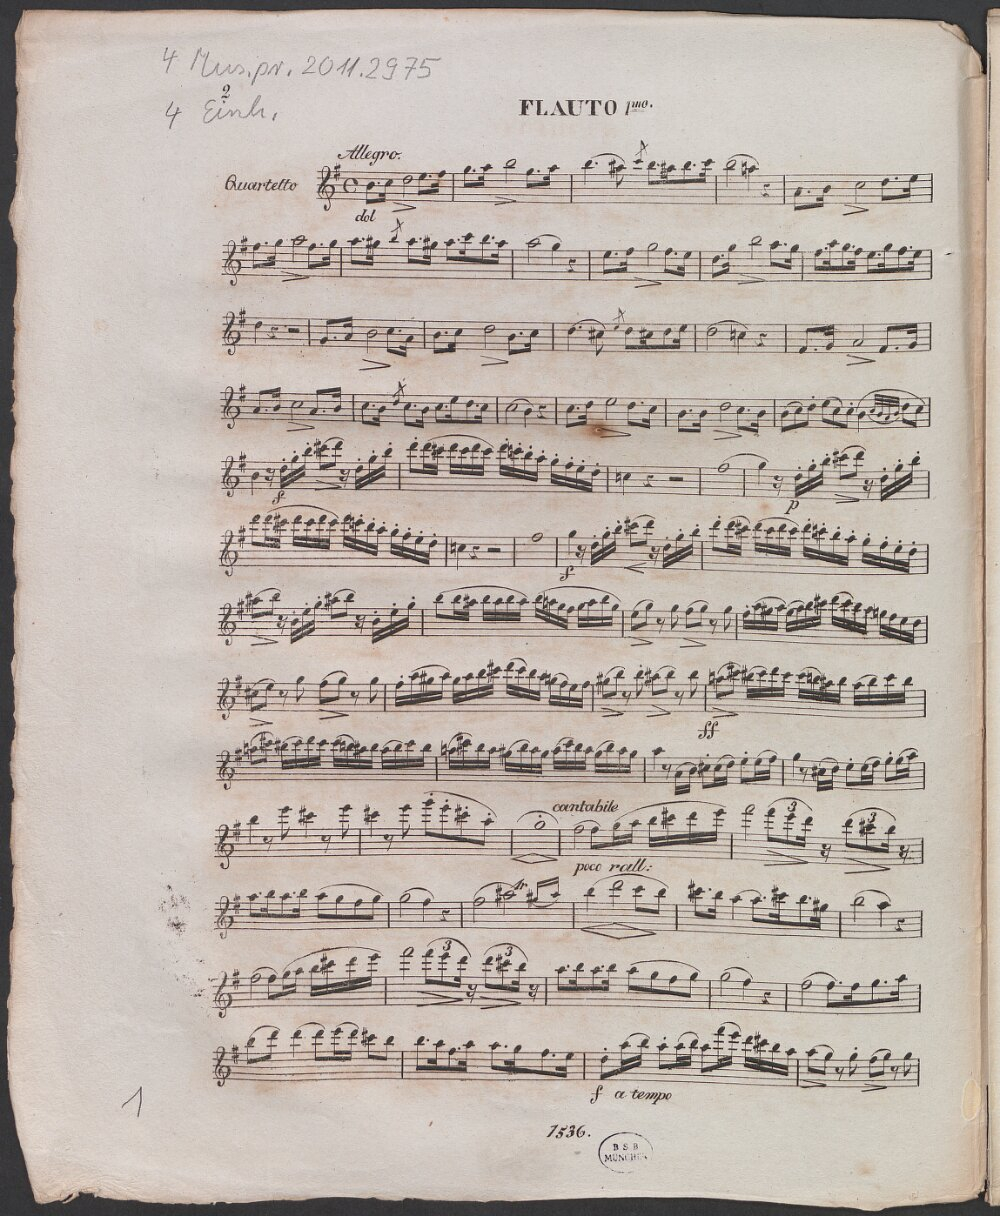 4 Mus.pr. 2011.2975
2
4 Einh.
FLAUTO 1mo.
Allegro.
Quartetto
dol
f
p
f
ff
cantabile
poco rall:
3 3
tr
3 3
f a tempo
1
1536.
B S B
MÜNCHEN